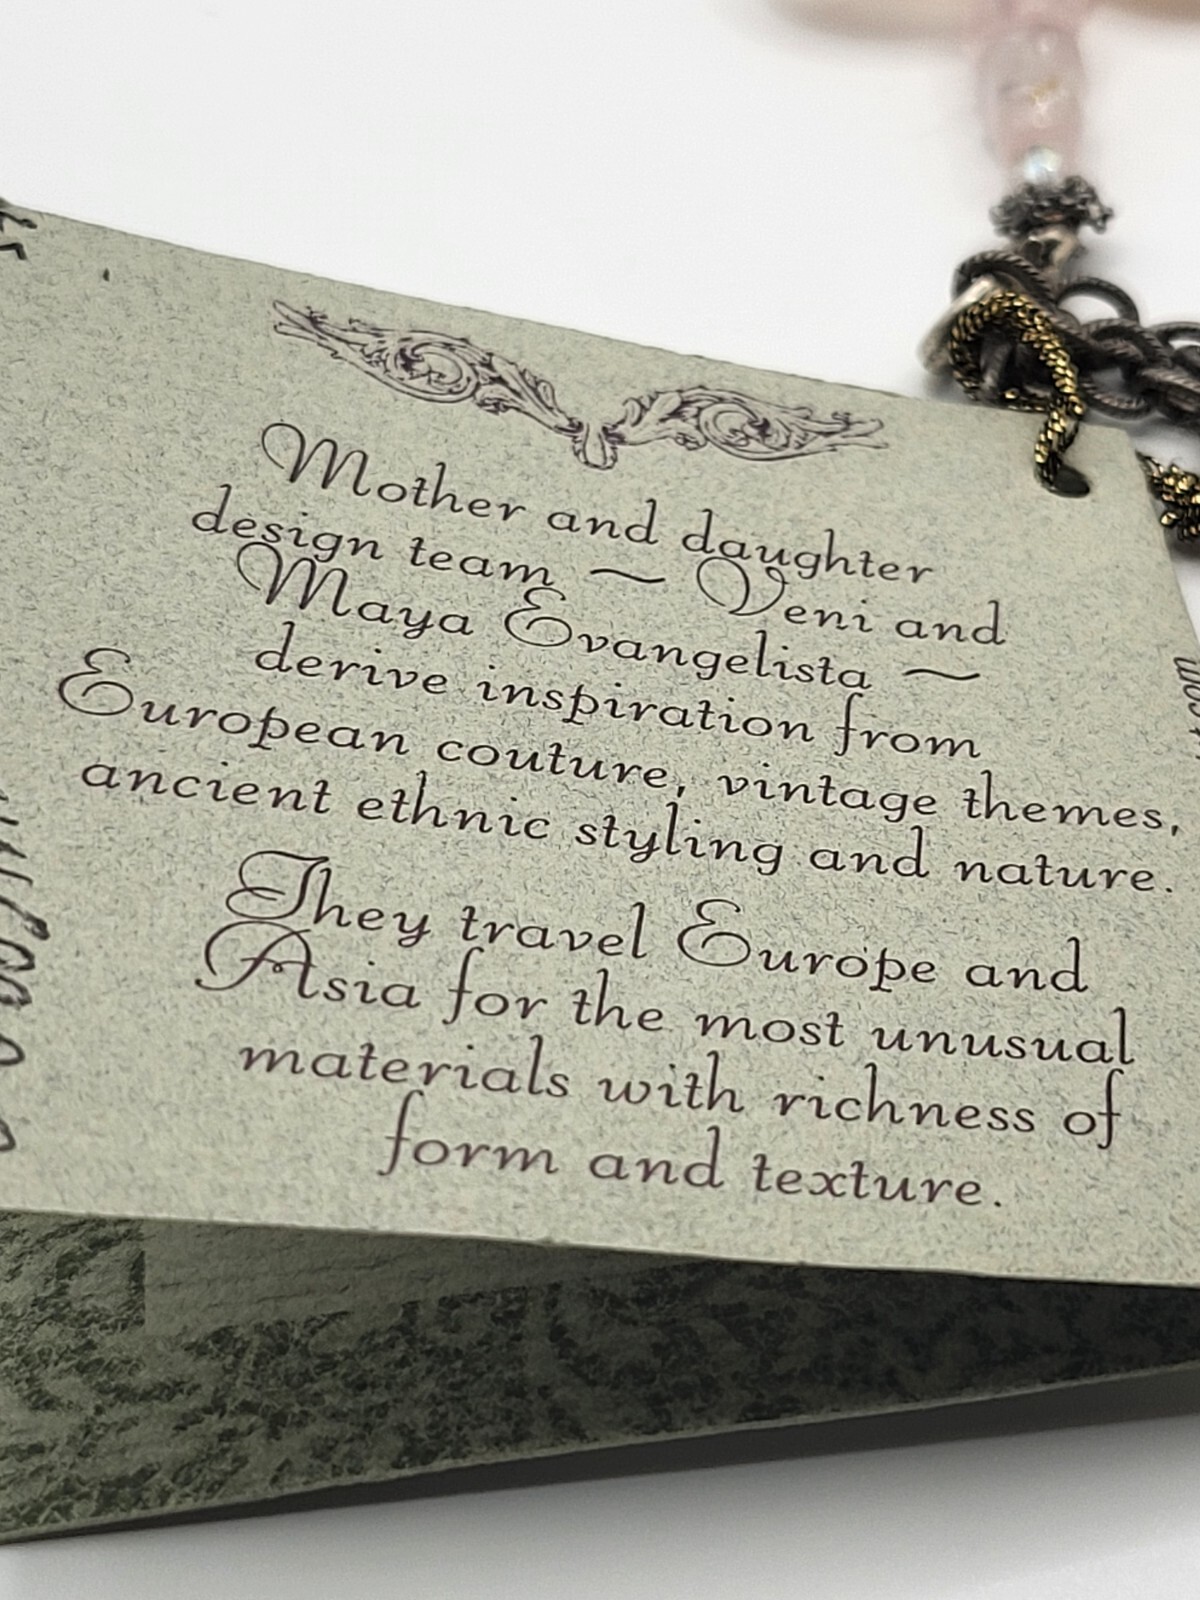 Mother and daughter
design team ~ Veni and
Maya Evangelista ~
derive inspiration from
European couture, vintage themes,
ancient ethnic styling and nature.
They travel Europe and
Asia for the most unusual
materials with richness of
form and texture.